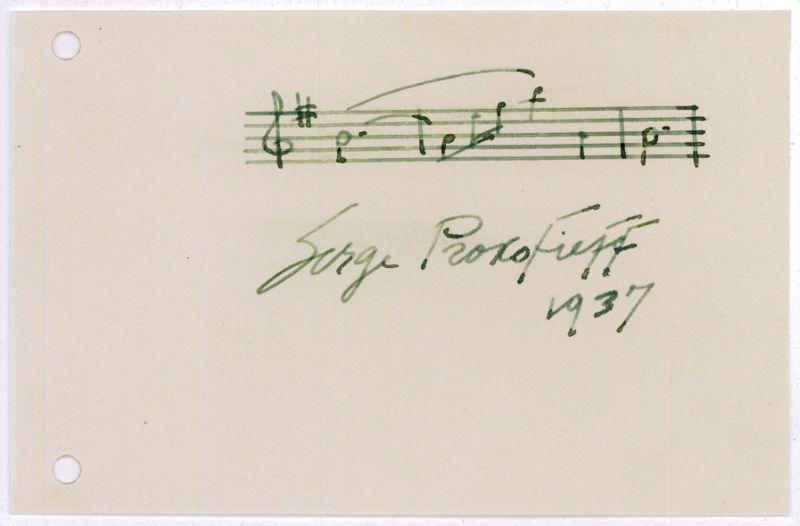 Serge Prokofieff
1937